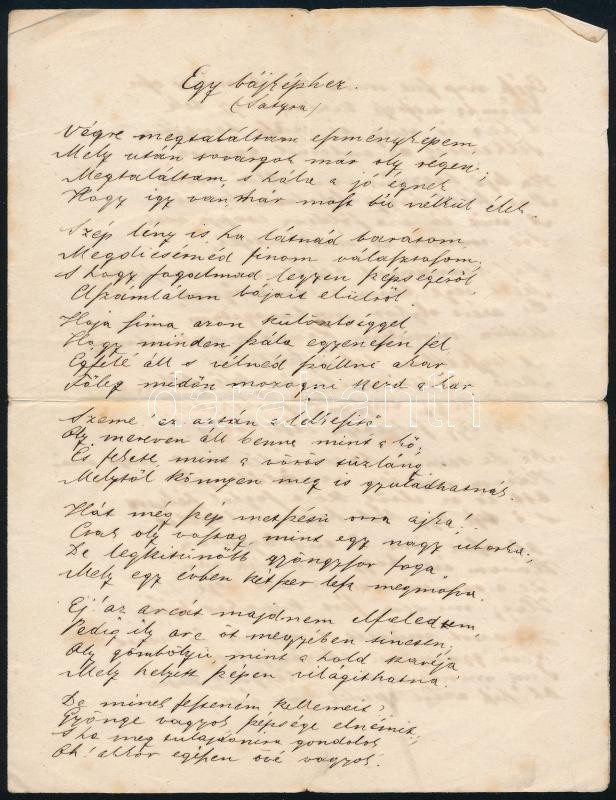 Egy bájképhez.
(Satyra)
Végre megtaláltam eszményképem
Mely után sovárgok már oly régen;
Megtaláltam s hála a jó égnek
Hogy igy van, már most bú nélkül élek.
Szép lény is, ha látnád barátom
Megdicsérnéd finom választásom,
S hogy fogalmad legyen szépségéről
Elszámlálom bájait elulről.
Haja sima azon különbséggel
Hogy minden szála egyenesen fel
Égfelé áll s vélnéd szállni akar
Főleg midőn mozogni kezd a kar.
Szeme, ez aztán a lélkesitő
Oly mereven áll benne mint a kő,
És fekete, mint a vörös tűzláng,
Melytől könnyen meg is gyuladhatnák.
Hát még szép metszésü orra ajka!
Csak oly vastag, mint egy nagy uborka;
De legkitünőbb gyöngysor foga,
Mely egy évben kétszer lesz megmosva.
Ej! az arcát majdnem elfeledtem,
Pedig ily arc öt megyében sincsen,
Oly gömbölyü, mint a hold karéja
Mely helyett szépen világithatna!
De minek festeném kellemeit,
Gyönge vagyok szépsége elnémit;
S ha meg tulajdonira gondolok
Oh! akkor egészen övé vagyok.
darabanth